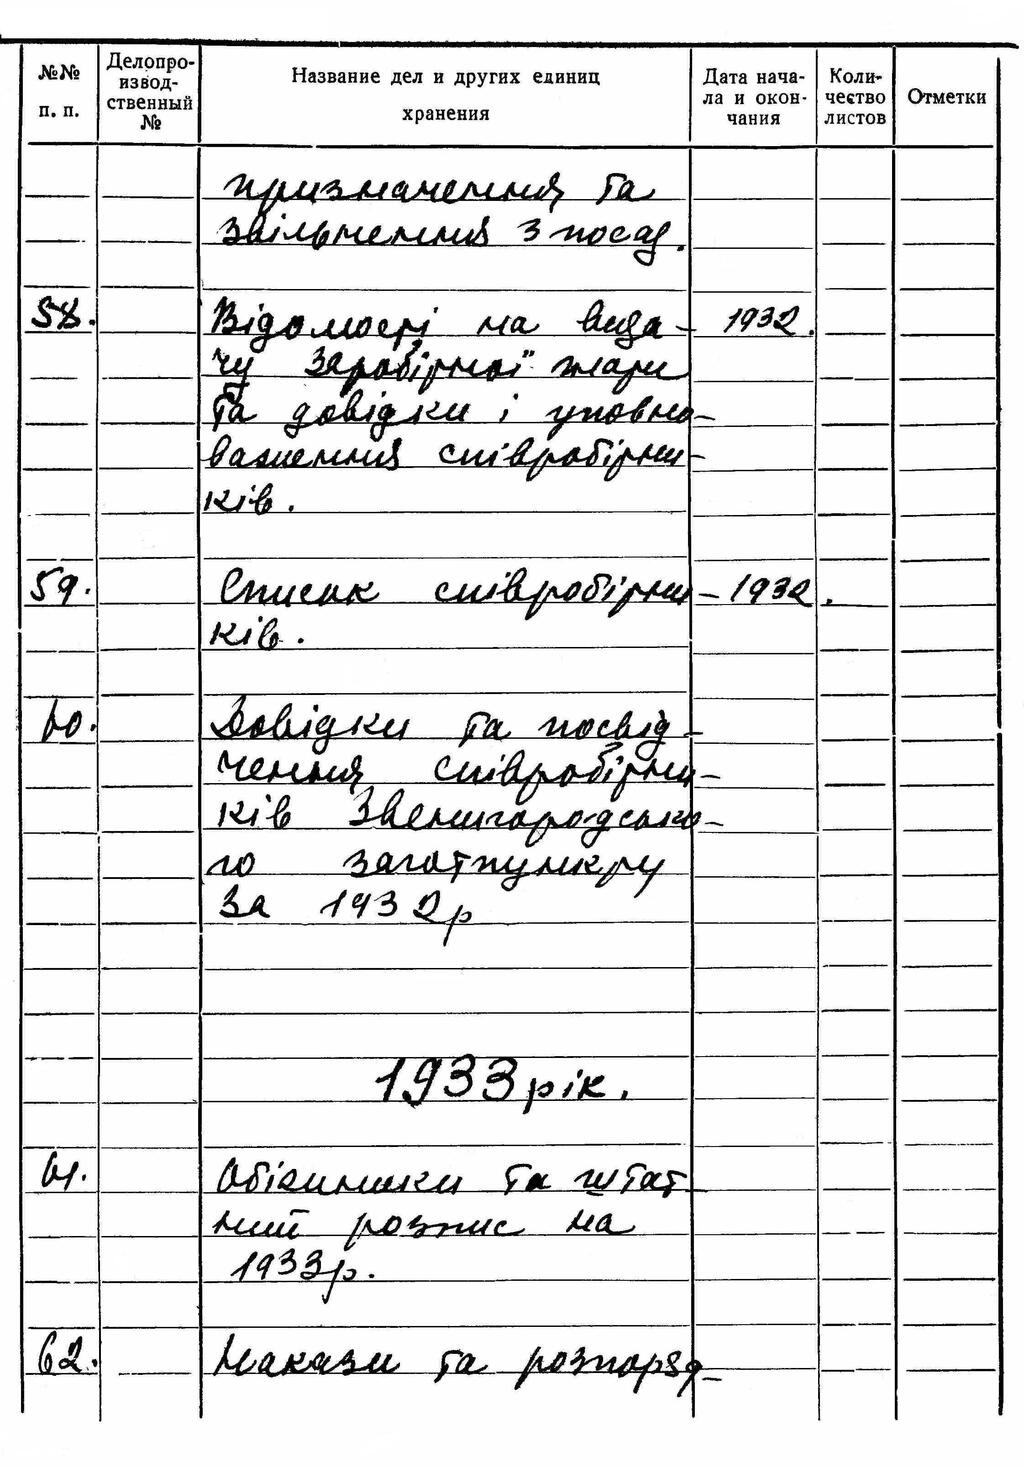 №№ п. п.
Делопро-
извод-
ственный
№
Название дел и других единиц
хранения
Дата нача-
ла и окон-
чания
Коли-
чество
листов
Отметки
призначення та
звільнення з посад.
58. Відомості на вида- 1932.
чу заробітної плати
та довідки і уповно-
важення співробітни-
ків.
59. Список співробітни- 1932.
ків.
60. Довідки та посвід-
чення співробітни-
ків Звенигородсько-
го заготпункту
за 1932р
1933 рік.
61. Обіжники та штат-
ний розпис на
1933р.
62. Накази та розпоряд-